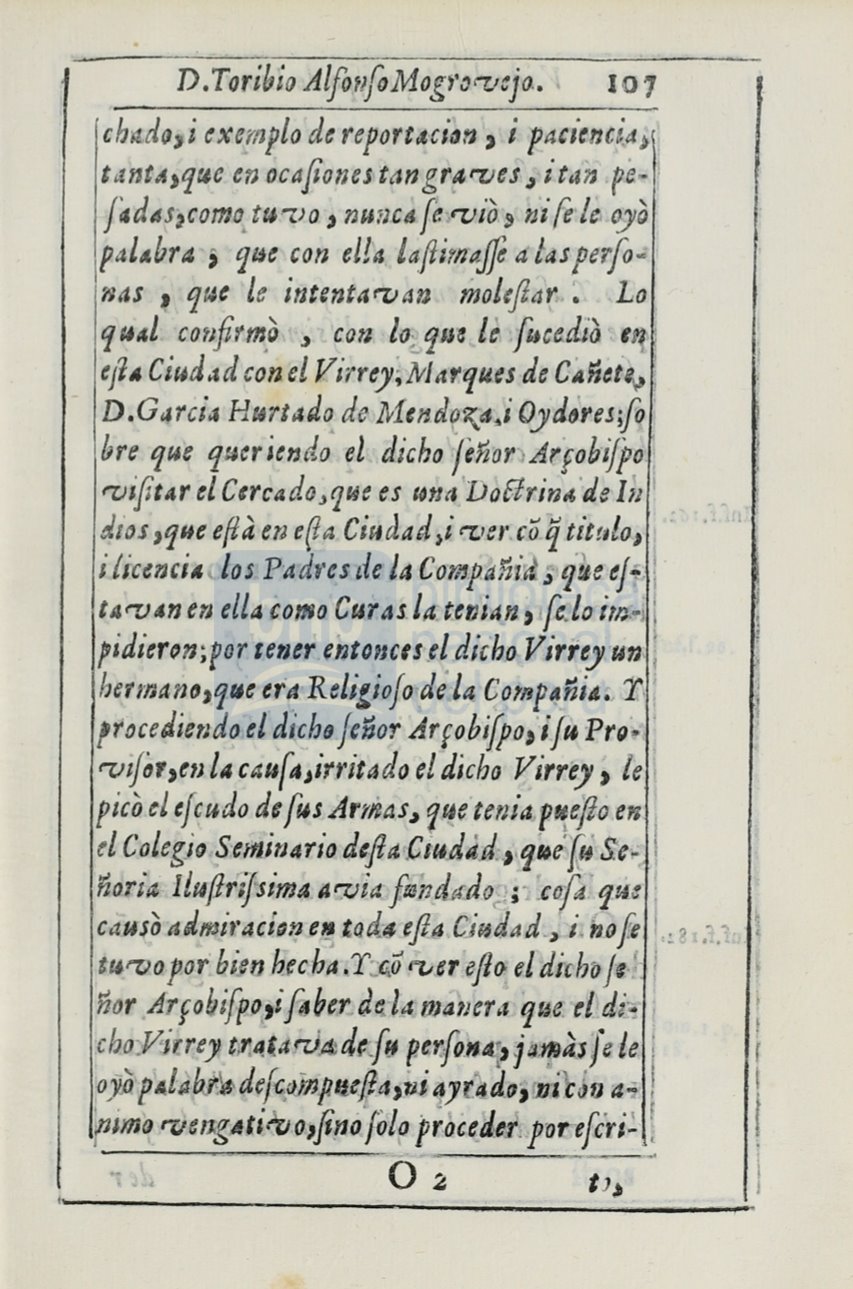 D.Toribio Alfonſo Mogrovejo. 107
chado, i exemplo de reportacion, i paciencia,
tanta, que en ocaſiones tan graves, i tan pe-
ſadas, como tuvo, nunca ſe viò, ni ſe le oyò
palabra, que con ella laſtimaſſe a las perſo-
nas, que le intentavan moleſtar. Lo
qual confirmò, con lo que le ſucediò en
eſta Ciudad con el Virrey, Marques de Cañete,
D.Garcia Hurtado de Mendoza, i Oydores; ſo
bre que queriendo el dicho ſeñor Arçobiſpo
viſitar el Cercado, que es una Doctrina de In
dios, que eſtà en eſta Ciudad, i ver cõ q̃ titulo,
i licencia los Padres de la Compañia, que eſ-
tavan en ella como Curas la tenian, ſe lo im-
pidieron; por tener entonces el dicho Virrey un
hermano, que era Religioſo de la Compañia. Y
procediendo el dicho ſeñor Arçobiſpo, i ſu Pro-
viſor, en la cauſa, irritado el dicho Virrey, le
picò el eſcudo de ſus Armas, que tenia pueſto en
el Colegio Seminario deſta Ciudad, que ſu Se-
ñoria Iluſtriſsima avia fundado; coſa que
causò admiracion en toda eſta Ciudad, i no ſe
tuvo por bien hecha. Y cõ ver eſto el dicho ſe
ñor Arçobiſpo, i ſaber de la manera que el di-
cho Virrey tratava de ſu perſona, jamàs ſe le
oyò palabra deſcompueſta, ni ayrado, ni con a-
nimo vengativo, ſino ſolo proceder por eſcri-
O 2 to,